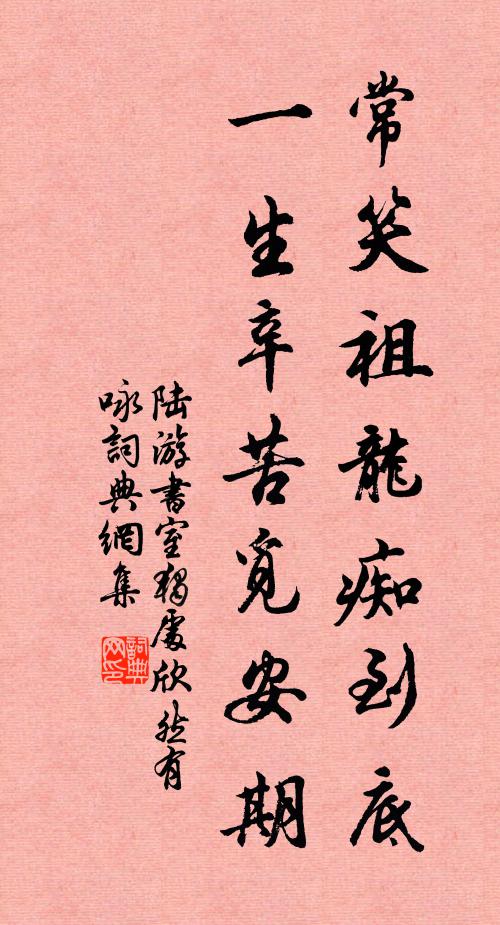 常笑祖龍痴到底
一生辛苦覓安期
陆游書室獨處欣然有
咏詞典網集
詞典网印